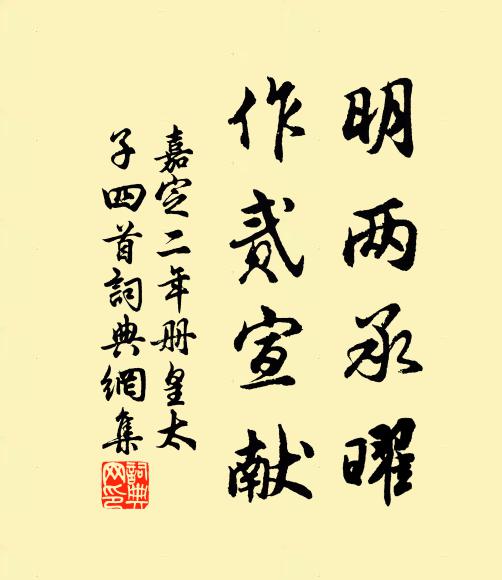 明两承曜
作贰宣献
嘉定二年册皇太
子四首詞典網集